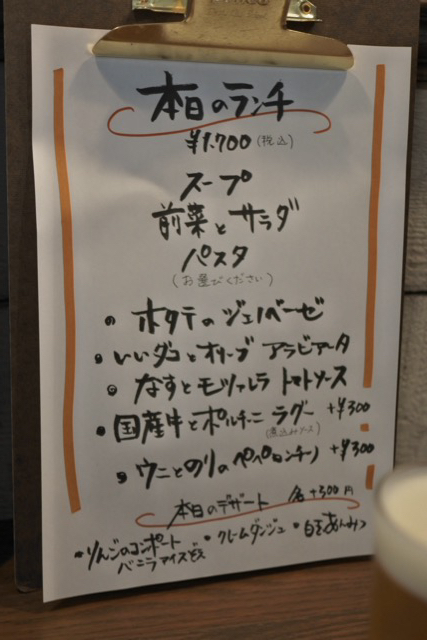 本日のランチ
¥1.700(税込)
スープ
前菜とサラダ
パスタ
(お選びください)
ホタテのジェノベーゼ
いいダコとオリーブ アラビアータ
なすとモッツァレラ トマトソース
国産牛とポルチーニ ラグー +¥300
(煮込みソース)
ウニとのりのペペロンチーノ +¥300
本日のデザート 各+300円
・りんごのコンポート ・クレームダンジュ ・白玉あんみつ
バニラアイス